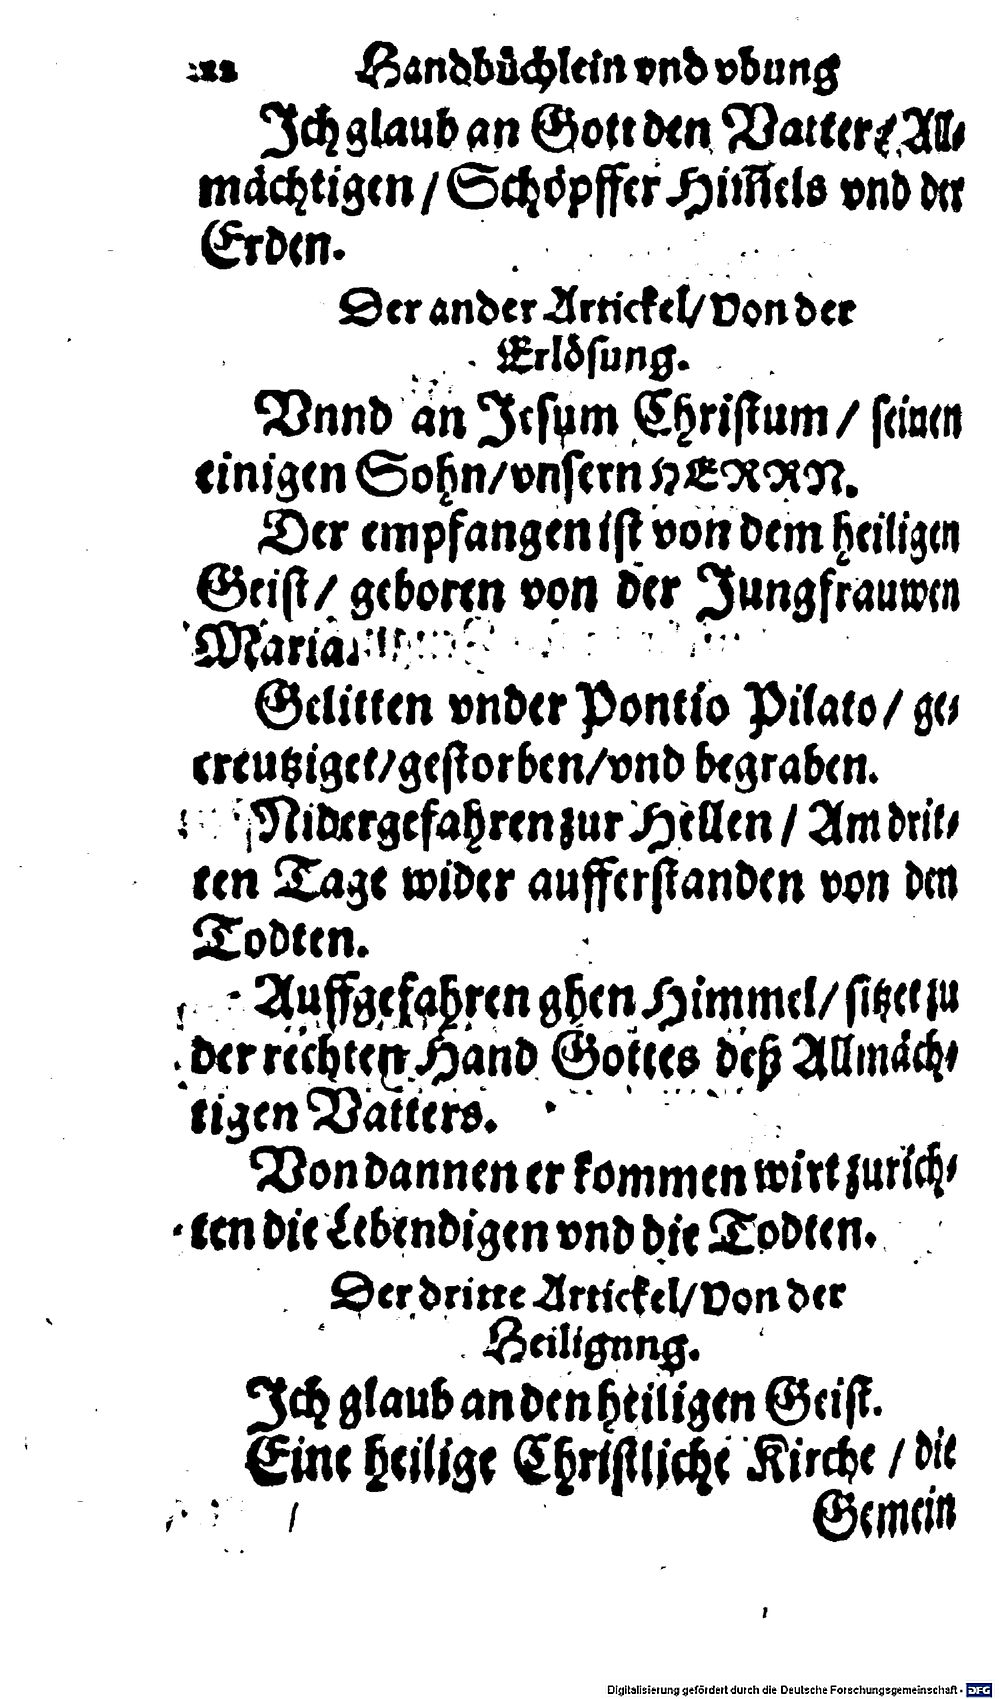 22 Handbüchlein vnd vbung
Ich glaub an Gott den Vatter / All⸗
mächtigen / Schöpffer Him̄els vnd der
Erden.
Der ander Artickel / Von der
Erlösung.
Vnnd an Jesum Christum / seinen
einigen Sohn / vnsern HERRN.
Der empfangen ist von dem heiligen
Geist / geboren von der Jungfrauwen
Maria.
Gelitten vnder Pontio Pilato / ge⸗
creutziget / gestorben / vnd begraben.
Nidergefahren zur Hellen / Am drit⸗
ten Tage wider aufferstanden von den
Todten.
Auffgefahren ghen Himmel / sitzet zu
der rechten Hand Gottes deß Allmäch⸗
tigen Vatters.
Von dannen er kommen wirt zurich⸗
ten die Lebendigen vnd die Todten.
Der dritte Artickel / Von der
Heiligung.
Ich glaub an den heiligen Geist.
Eine heilige Christliche Kirche / die
Gemein
Digitalisierung gefördert durch die Deutsche Forschungsgemeinschaft - DFG